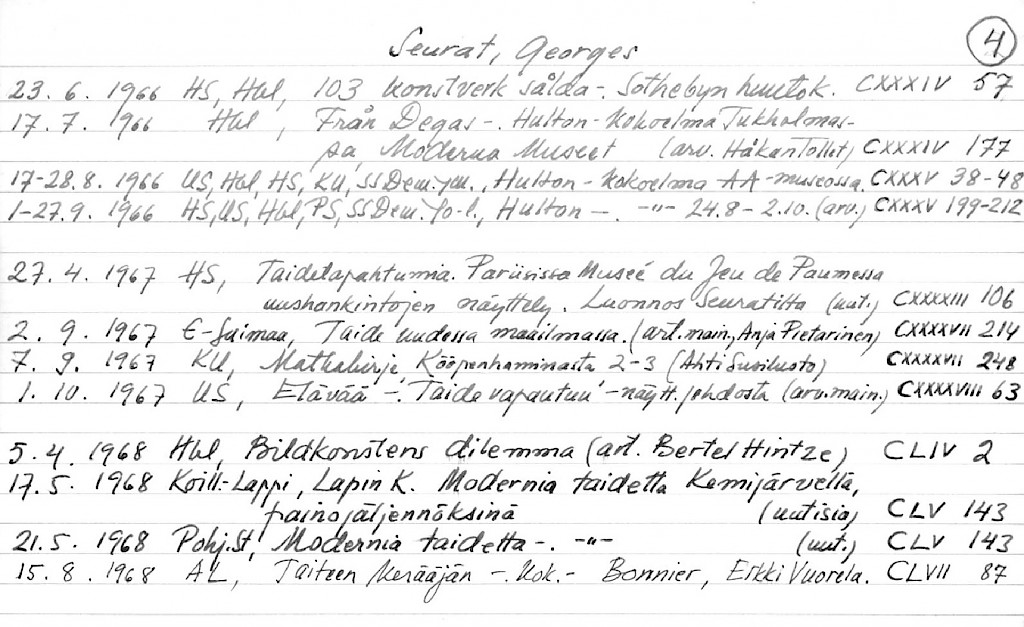 Seurat, Georges 4
23. 6. 1966 HS, Hbl, 103 konstverk sålda -. Sothebyn huutok. CXXXIV 57
17. 7. 1966 Hbl, Från Degas -. Hulton-kokoelma Tukholmas-
sa, Moderna Museet (arv. Håkan Tollet) CXXXIV 177
17-28.8. 1966 US, Hbl, HS, KU, SSDem. ym., Hulton-kokoelma AA-museossa. CXXXV 38-48
1-27.9. 1966 HS, US, Hbl, PS, SSDem. Jo-l., Hulton -. -"- 24.8 - 2.10. (arv.) CXXXV 199-212
27. 4. 1967 HS, Taidetapahtumia. Pariisissa Museé du Jeu de Paumessa
uushankintojen näyttely. Luonnos Seuratilta (uut.) CXXXXIII 106
2. 9. 1967 E-Saimaa, Taide uudessa maailmassa. (art. main., Anja Pietarinen) CXXXXVII 214
7. 9. 1967 KU, Matkakirje Kööpenhaminasta 2-3 (Ahti Susiluoto) CXXXXVII 248
1. 10. 1967 US, Elävää -. 'Taide vapautuu'-näytt. johdosta (arv. main.) CXXXXVIII 63
5. 4. 1968 Hbl, Bildkonstens dilemma (art. Bertel Hintze) CLIV 2
17. 5. 1968 Koill-Lappi, Lapin K. Modernia taidetta Kemijärvellä,
painojäljennöksinä (uutisia) CLV 143
21. 5. 1968 Pohj.St, Modernia taidetta -. -"- (uut.) CLV 143
15. 8. 1968 AL, Taiteen kerääjän -. Kok. - Bonnier, Erkki Vuorela. CLVII 87